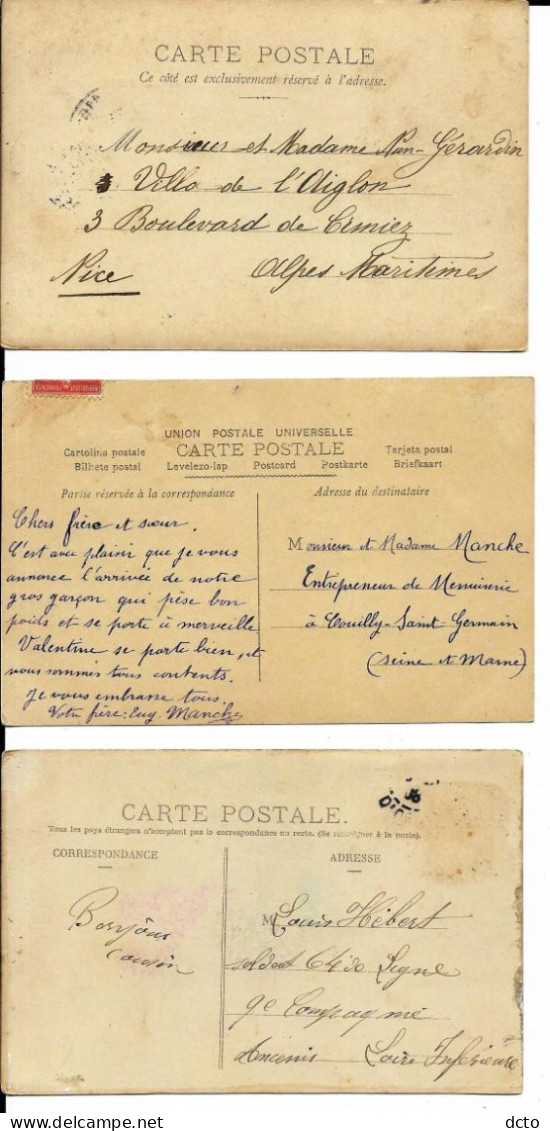 CARTE POSTALE
Ce côté est exclusivement réservé à l'adresse.
Monsieur et Madame Nun-Gérardin
Villa de l'Aiglon
3 Boulevard de Cimiez
Nice Alpes Maritimes
UNION POSTALE UNIVERSELLE
Cartolina postale CARTE POSTALE Tarjeta postal
Bilhete postal Levelezo-lap Postcard Postkarte Briefkaart
Partie réservée à la correspondance
Chers frère et sœur.
C'est avec plaisir que je vous
annonce l'arrivée de notre
gros garçon qui pèse bon
poids et se porte à merveille.
Valentine se porte bien, et
nous sommes tous contents.
Je vous embrasse tous.
Votre frère: Eug. Manche
Adresse du destinataire
Monsieur et Madame Manche
Entrepreneur de Menuiserie
à Couilly-Saint-Germain
(Seine et Marne)
CARTE POSTALE.
Tous les pays étrangers n'acceptent pas la correspondance au recto. (Se renseigner à la poste).
CORRESPONDANCE
Bonjour
Cousin
ADRESSE
M Louis Hébert
soldat 64 de Ligne
9e Compagnie
Ancenis Loire Inférieure
© dcto delcampe.net